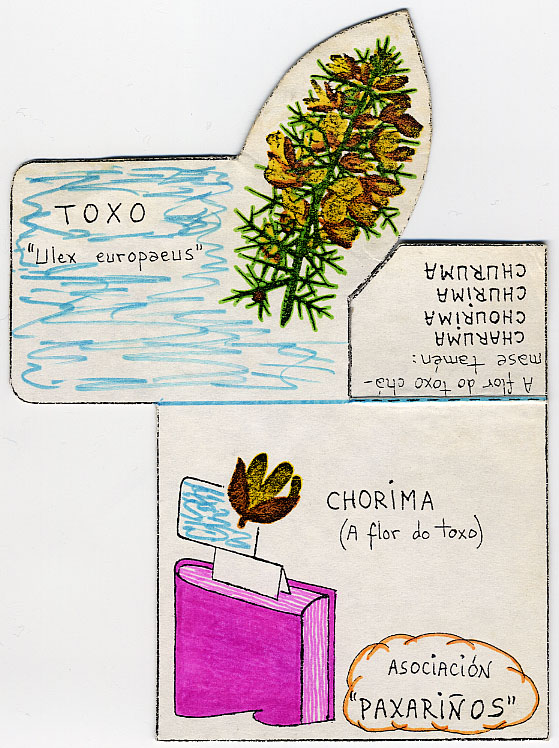 TOXO
"Ulex europaeus"
A flor do toxo chá-
mase tamén:
CHARUMA
CHOURIMA
CHURIMA
CHURUMA
CHORIMA
(A flor do toxo)
ASOCIACIÓN
"PAXARIÑOS"